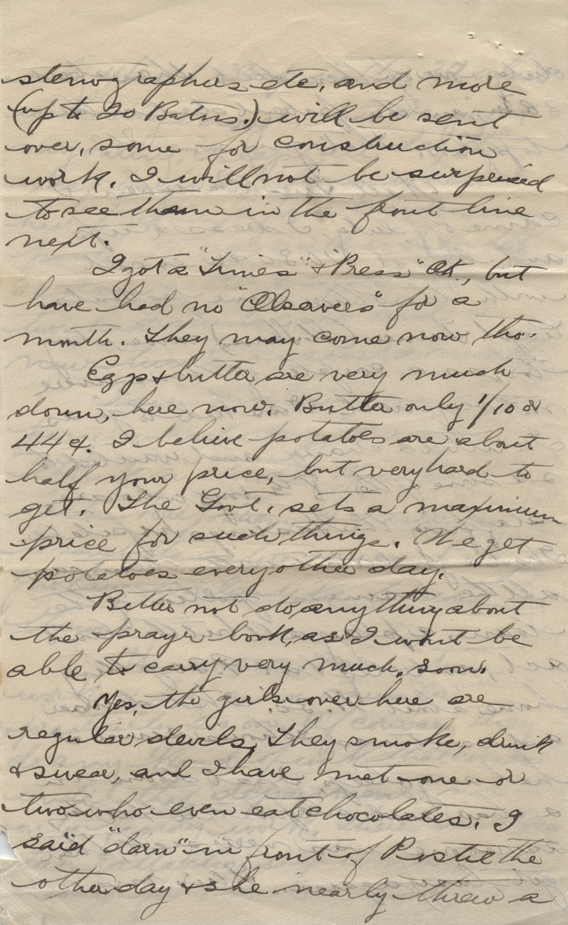 stenographers etc, and more
(up to 20 Batns.) will be sent
over, some for construction
work. I will not be surprised
to see them in the front line
next.
I got a "Times" & "Press" Ok, but
have had no "Observers" for a
month. They may come now tho.
Eggs & butter are very much
down, here now. Butter only 1/10 or
44¢. I believe potatoes are about
half your price, but very hard to
get. The Govt. sets a maximum
price for such things. We get
potatoes every other day.
Better not do anything about
the prayer book, as I wont be
able to carry very much, soon.
Yes, the girls over here are
regular devils, They smoke, drink
& swear, and I have met one or
two who even eat chocolates. I
said "darn" in front of the
other day & she nearly threw a